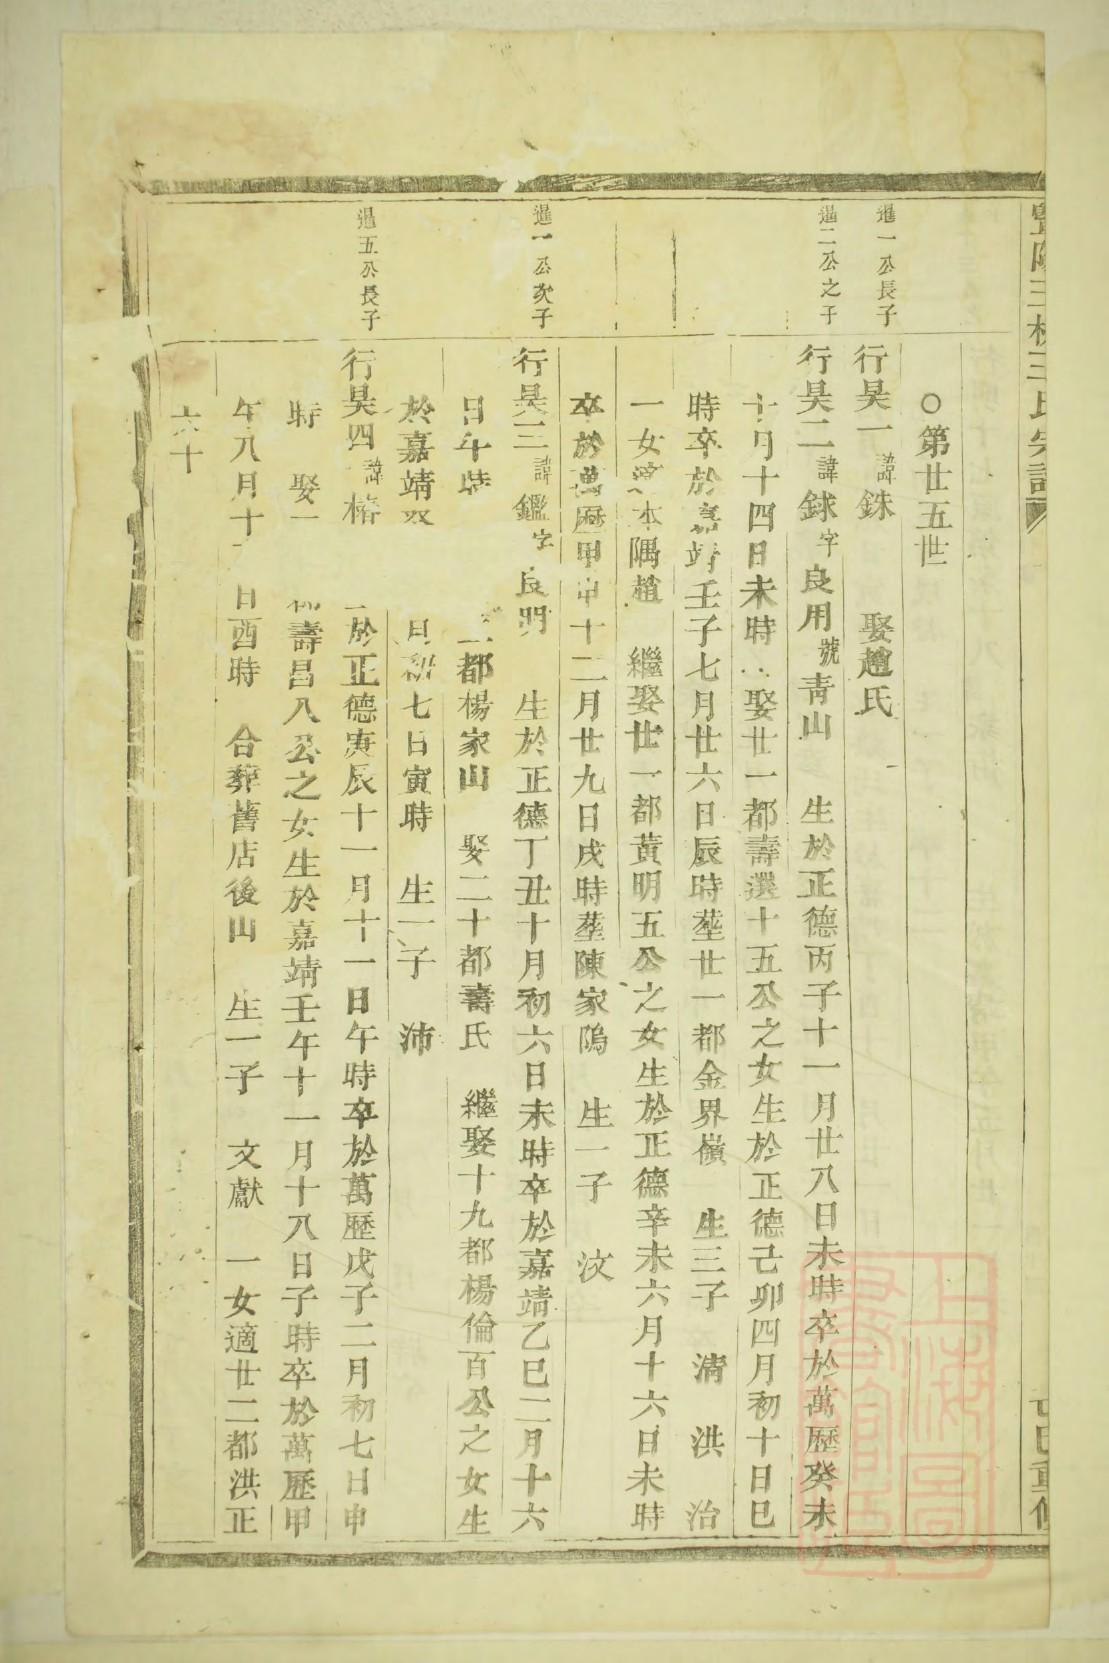 ○第廿五世
暹一公長子
行昊一諱銖 娶趙氏
暹二公之子
行昊二諱銶字良用號靑山 生於正德丙子十一月廿八日未時卒於萬歷癸未
十月十四日未時 娶廿一都壽選十五公之女生於正德己卯四月初十日巳
時卒於嘉靖壬子七月廿六日辰時塟廿一都金界嶺 生三子 淸 洪 治
一女 本隅趙 繼娶廿一都黃明五公之女生於正德辛未六月十六日未時
卒於萬歷甲申十二月廿九日戌時塟陳家塢 生一子 汶
暹一公次子
行昊三諱鑑字良明 生於正德丁丑十月初六日未時卒於嘉靖乙巳二月十六
日午時 都楊家山 娶二十都壽氏 繼娶十九都楊倫百公之女生
於嘉靖 月初七日寅時 生一子 沛
暹五公長子
行昊四諱椿 於正德庚辰十一月十一日午時卒於萬歷戊子二月初七日申
時 娶 壽昌八公之女生於嘉靖壬午十一月十八日子時卒於萬歷甲
午八月十 日酉時 合葬舊店後山 生一子 文獻 一女適廿二都洪正
六十